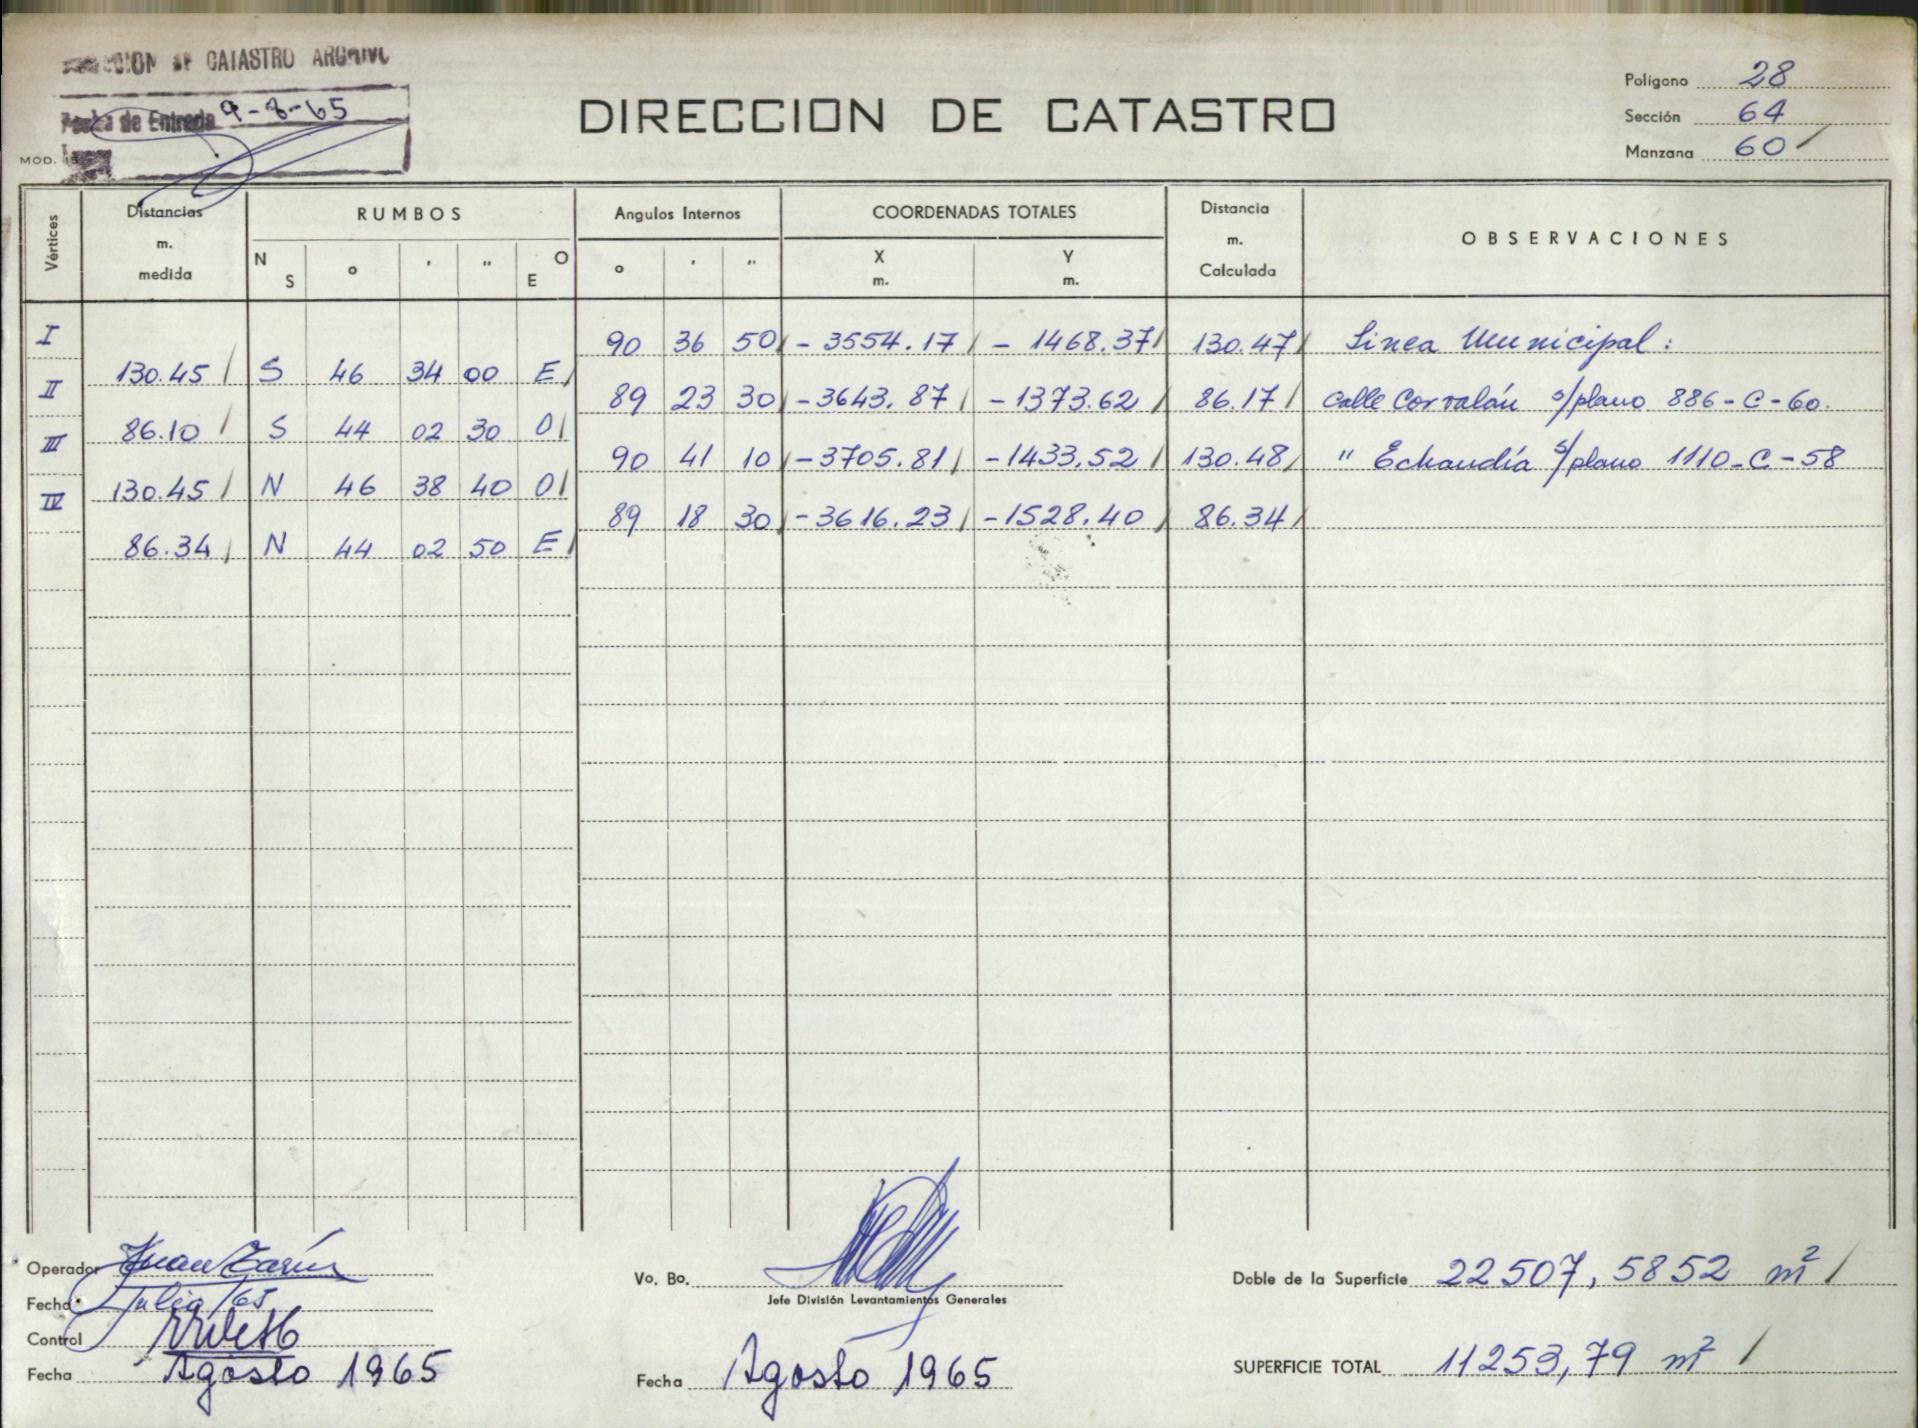 DE CATASTRO ARCHIVO
Fecha de Entrada 9-8-65
MOD.
DIRECCION DE CATASTRO
Polígono 28
Sección 64
Manzana 60
Vértices
Distancias
m.
medida
RUMBOS
N S ° ' " O E
Angulos Internos
° ' "
COORDENADAS TOTALES
X
m.
Y
m.
Distancia
m.
Calculada
OBSERVACIONES
I 90 36 50 - 3554.17 - 1468.37 130.47 Linea Municipal:
130.45 S 46 34 00 E
II 89 23 30 -3643.87 -1373.62 86.17 calle Corvalán s/plano 886-C-60.
86.10 S 44 02 30 O
III 90 41 10 -3705.81 -1433.52 130.48 " Echandía s/plano 1110-C-58
130.45 N 46 38 40 O
IV 89 18 30 -3616.23 -1528.40 86.34
86.34 N 44 02 50 E
Operador Juan
Fecha Julio/65
Control
Fecha Agosto 1965
Vo. Bo.
Jefe División Levantamientos Generales
Fecha Agosto 1965
Doble de la Superficie 22507,5852 m²
SUPERFICIE TOTAL 11253,79 m²